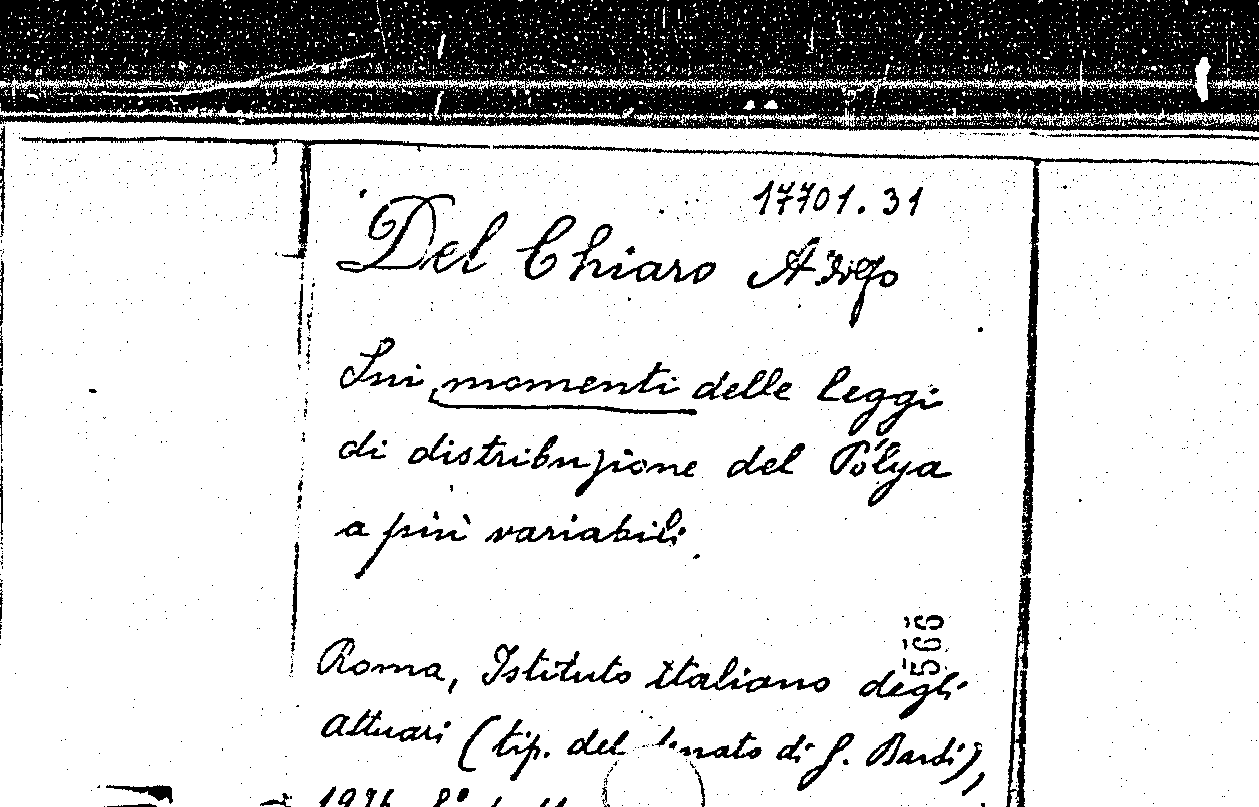 17701.31
Del Chiaro Adolfo
Sui momenti delle leggi
di distribuzione del Pólya
a più variabili.
566
Roma, Istituto Italiano degli
Attuari (tip. del Senato di G. Bardi),
8º